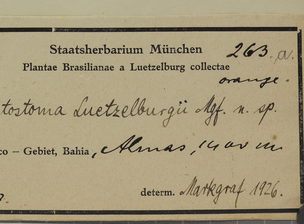 Staatsherbarium München 263 a.
Plantae Brasilianae a Luetzelburg collectae
orange.
tostoma Luetzelburgii Mgf. n. sp.
co – Gebiet, Bahia, Almas,
determ. Markgraf 1926.